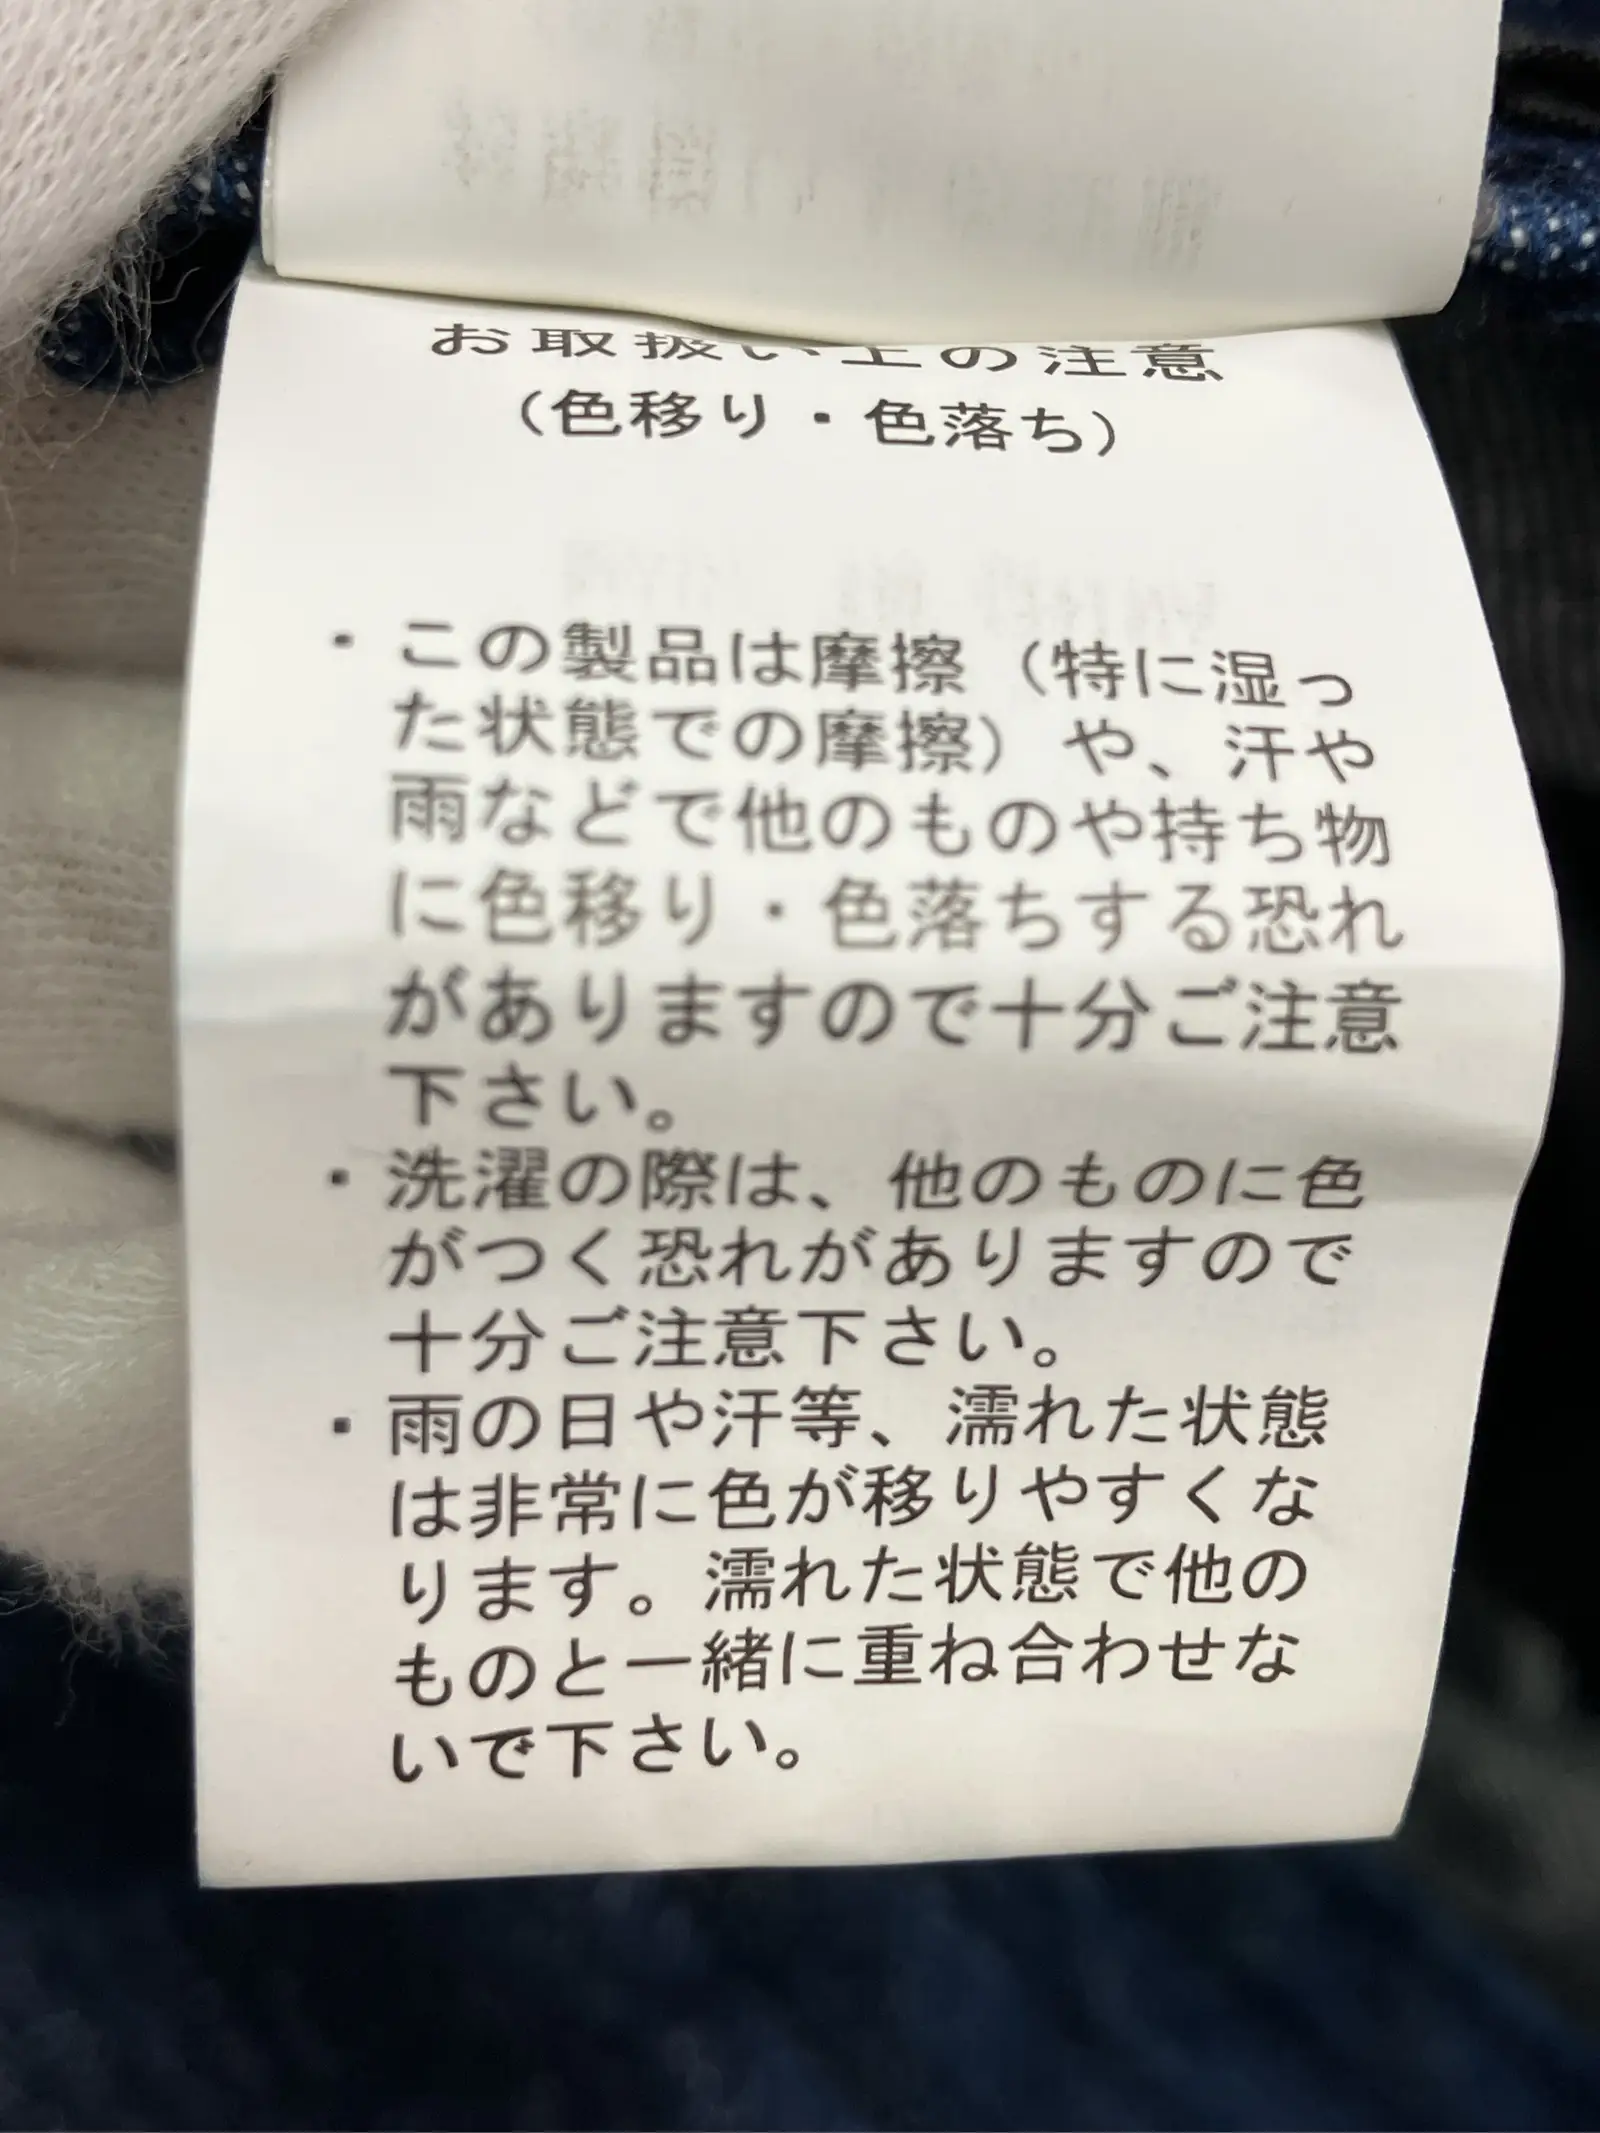 お取扱い上の注意
（色移り・色落ち）
・この製品は摩擦（特に湿っ
た状態での摩擦）や、汗や
雨などで他のものや持ち物
に色移り・色落ちする恐れ
がありますので十分ご注意
下さい。
・洗濯の際は、他のものに色
がつく恐れがありますので
十分ご注意下さい。
・雨の日や汗等、濡れた状態
は非常に色が移りやすくな
ります。濡れた状態で他の
ものと一緒に重ね合わせな
いで下さい。